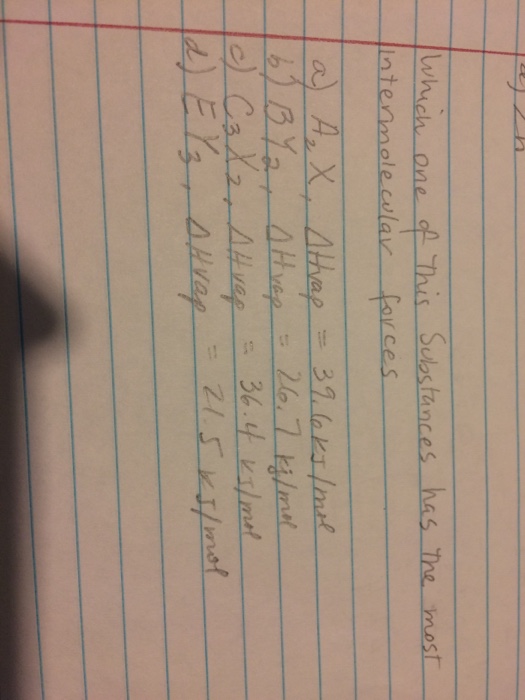 Which one of This Substances has The most
intermolecular forces
a) A₂X, ΔHvap = 39.6 kJ/mol
b) BY₂, ΔHvap = 26.7 kj/mol
c) C₃X₂, ΔHvap = 36.4 kJ/mol
d) EY₃, ΔHvap = 21.5 kJ/mol